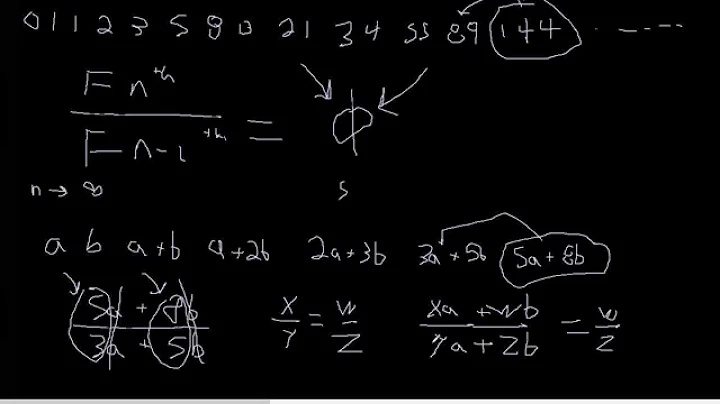 0 1 1 2 3 5 8 13 21 34 55 89 144 . . . . .
F n^th / F n-1^th = φ
n → ∞ 5
a b a+b a+2b 2a+3b 3a+5b 5a+8b
5a + 8b / 3a + 5b x/y = w/z xa + wb / ya + zb = w/z